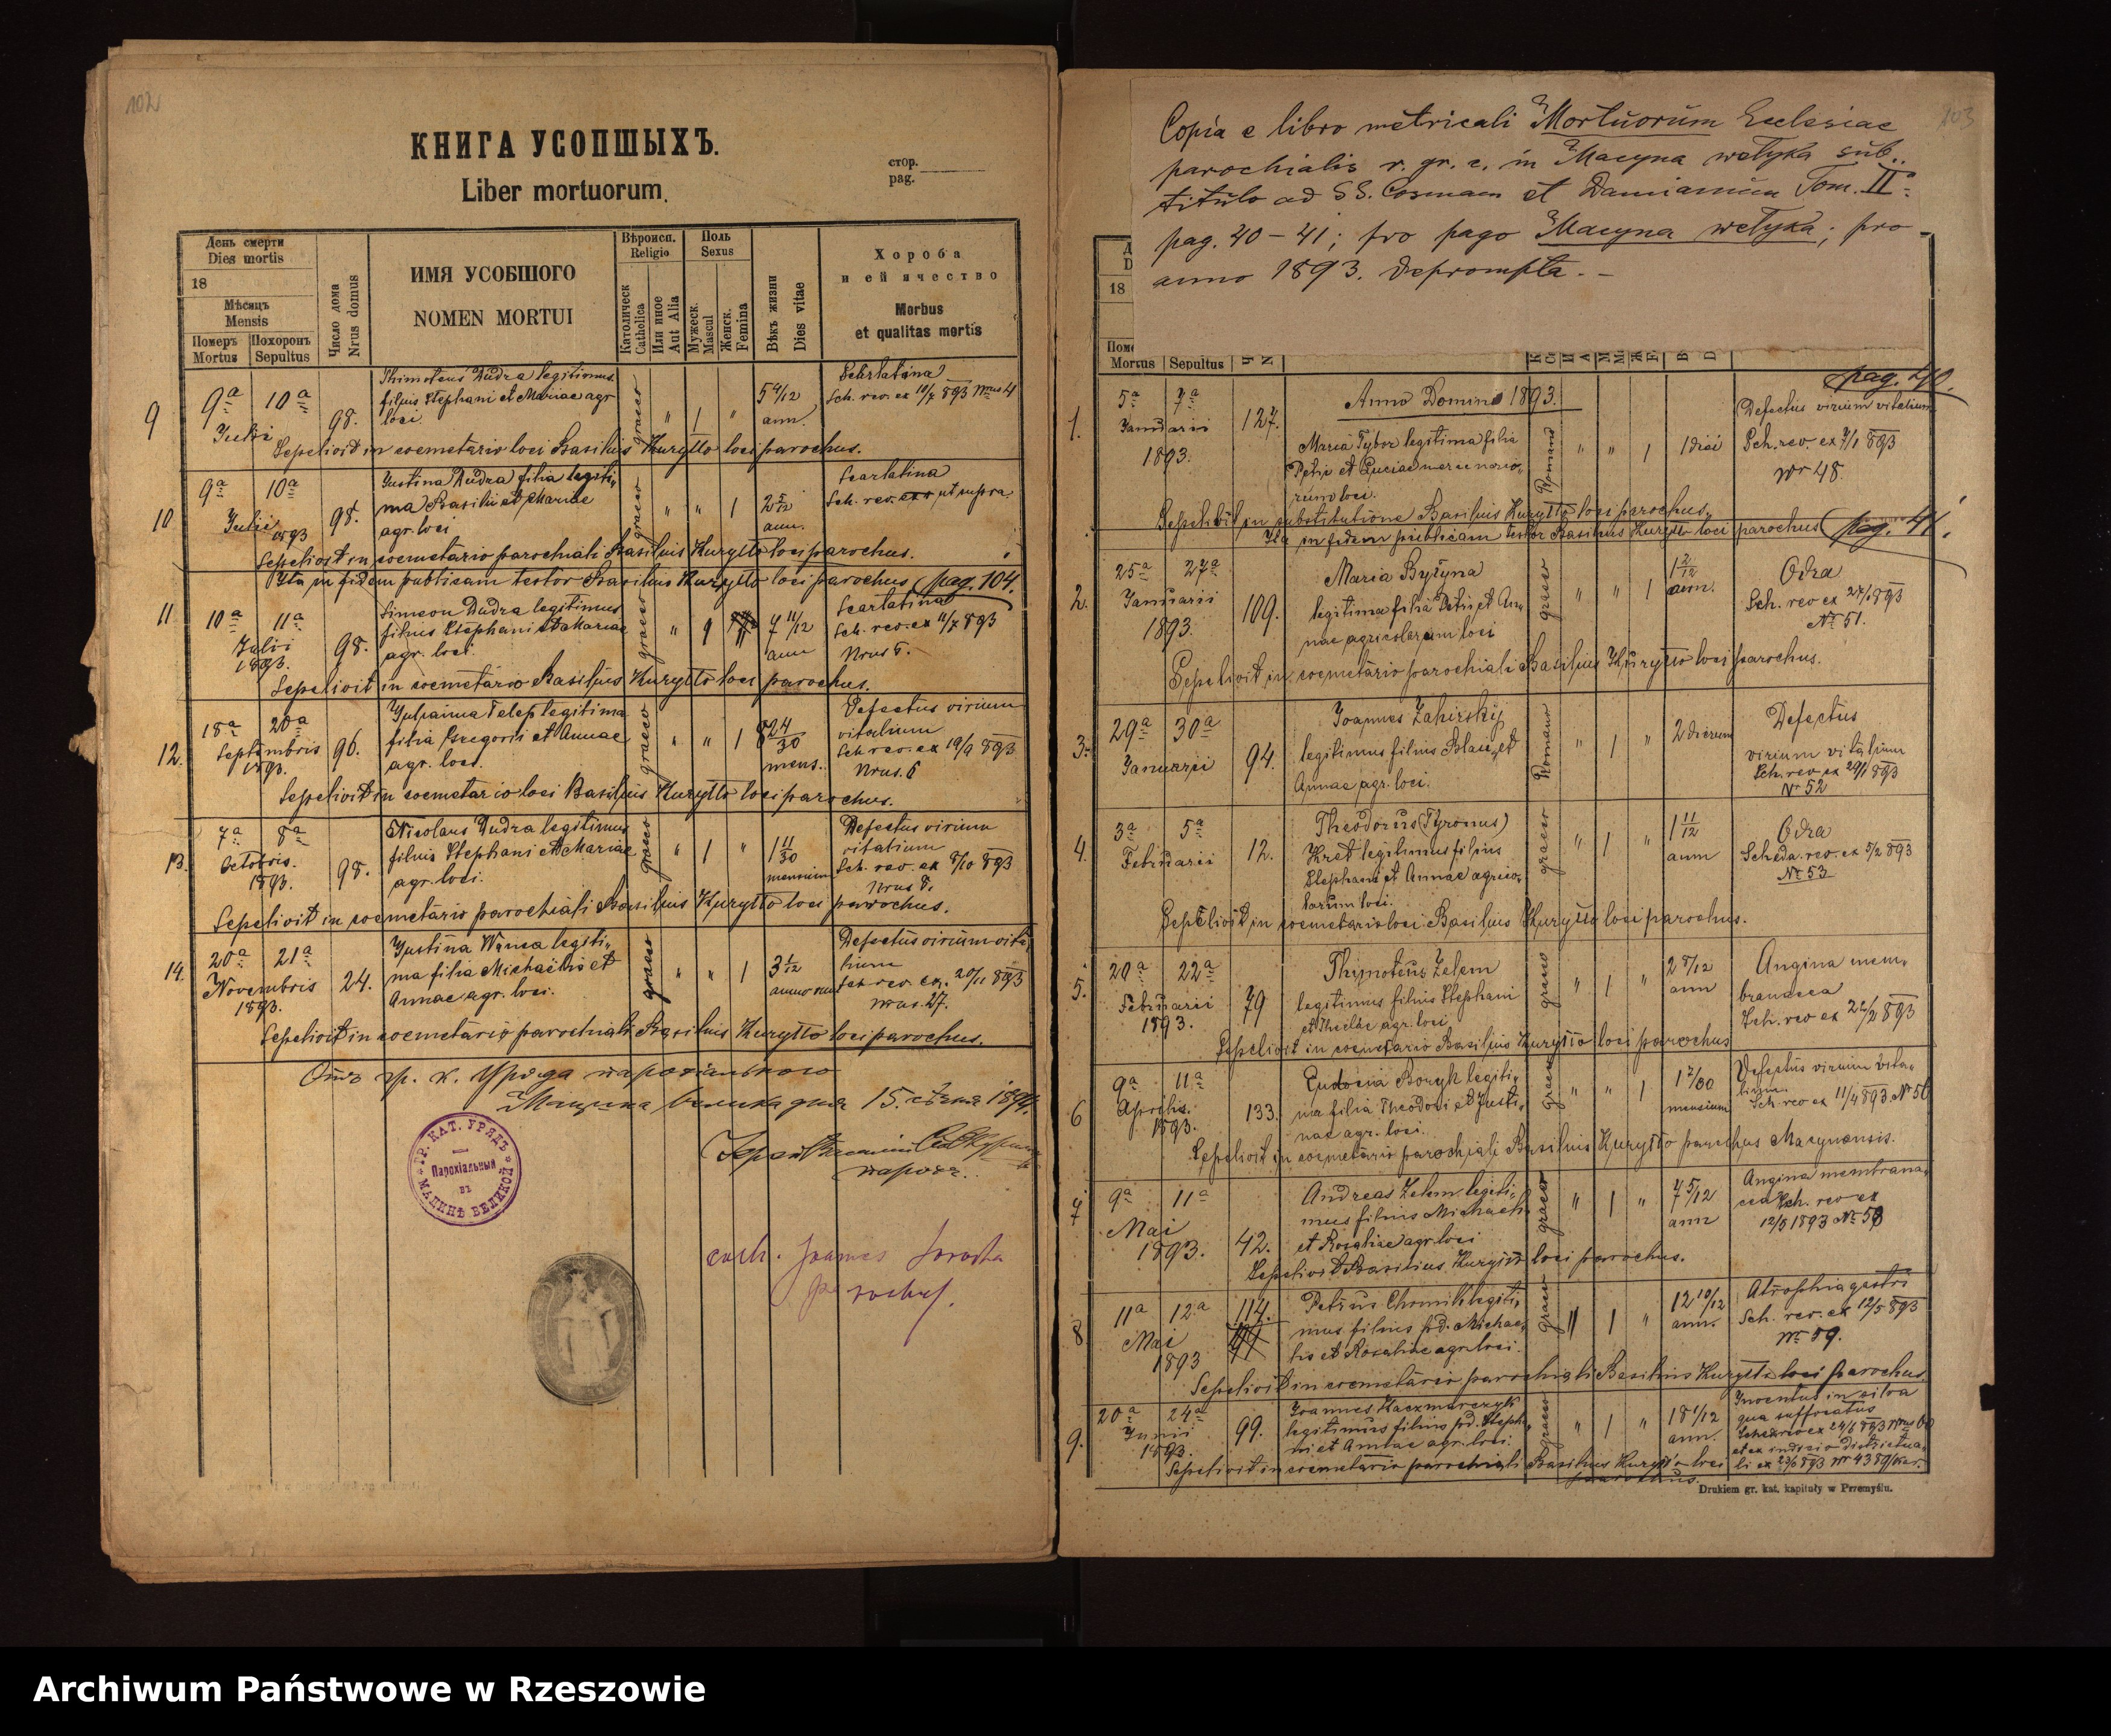 102
КНИГА УСОПШЫХЪ.
Liber mortuorum.
стор.
pag.
День смерти
Dies mortis
18
Мѣсяць
Mensis
Померъ Похоронъ
Mortus Sepultus
Число дома
Nrus domus
ИМЯ УСОБШОГО
NOMEN MORTUI
Вѣроисп.
Religio
Католическ
Catholica
Или иное
Aut Alia
Поль
Sexus
Мужеск.
Mascul
Женск.
Femina
Вѣкъ жизни
Dies vitae
Хороба
и ей ячество
Morbus
et qualitas mortis
9 9ª 10ª Julii 98.
Thimoteus Dudra legitimus
filius Stephani et Mariae agr
loci.
graeco " 1 " 5 4/12 ann.
Scarlatina
Sch. rev. ex 10/7 893 Nrus 4
Sepelivit in coemetario loci Basilius Kuryłło loci parochus.
10 9ª 10ª Julii 893 98.
Justina Dudra filia legiti„
ma Basilii et Mariae
agr. loci
graeco " " 1 2 5/12 ann.
Scarlatina
Sch. rev. ut supra
Sepelivit in coemetario parochiali Basilius Kuryłło loci parochus.
Ita in fidem publicam testor Basilius Kuryłło loci parochus pag. 104.
11 10ª 11ª Julii 1893. 98.
Simeon Dudra legitimus
filius Stephani et Mariae
agr. loci.
graeco " 1 7 11/12 ann
Scarlatina
Sch. rev. ex 11/7 893
Nrus 5.
Sepelivit in coemetario Basilius Kuryłło loci parochus.
12. 18ª 20ª Septembris 1893. 96.
Telep legitima
filia Gregorii et Annae
agr. loci.
graeco " " 1 8 24/30 mens.
Defectus virium
vitalium
Sch rev. ex 19/9 893
Nrus. 6
Sepelivit in coemetario loci Basilius Kuryłło loci parochus.
13. 7ª 8ª Octobris. 1893. 98.
Nicolaus Dudra legitimus
filius Stephani et Mariae
agr. loci.
graeco " 1 " 1 11/30 mensium
Defectus virium
vitalium
Sch. rev. ex 8/10 893
Nrus 8.
Sepelivit in coemetario parochiali Basilius Kuryłło loci parochus.
14. 20ª 21ª Novembris 1893. 24.
Justina Wanca legiti„
ma filia Michaëlis et
Annae agr. loci.
graeco " " 1 3 1/12 annorum
Defectus virium vita
lium
Sch rev. ex. 20/11 893
Nrus. 27.
Sepelivit in coemetario parochiali Basilius Kuryłło loci parochus.
Отъ гр. к. Уряда парохіяльного
Мацина велика дня 15. січня 1894.
парох.
ГР. КАТ. УРЯДЪ
Парохіальный
въ
МАЦИНѢ ВЕЛИКОЙ
Joannes
parochus.
103
Copia e libro metricali Mortuorum Ecclesiae
parochialis r. gr. c. in Macyna wełyka sub„
titulo ad SS. Cosmam et Damianum Tom. II:
pag. 40 – 41; pro pago Macyna wełyka; pro
anno 1893. deprompta. –
18
Mortus Sepultus
pag. 40.
Anno Domino 1893.
1. 5ª 7ª Januarii 1893. 127.
Maria Tybor legitima filia
Petri et Luciae mercenario„
rum loci.
Romano " " 1 1 diei
Defectus virium vitalium
Sch. rev. ex 7/1 893
Nr 48.
Sepelivit in substitutione Basilius Kuryłło loci parochus.
Ita in fidem publicam testor Basilius Kuryłło loci parochus pag. 41.
2. 25ª 27ª Januarii 1893. 109.
Maria Byłyna
legitima filia Petri et An„
nae agricolarum loci
graeco " " 1 1 2/12 ann.
Odra
Sch. rev ex 27/1 893
Nr 51.
Sepelivit in coemetario parochiali Basilius Kuryłło loci parochus.
3. 29ª 30ª Januarii 94.
Joannes Zahirskij
legitimus filius Blasii et
Annae agr. loci.
Romano " 1 " 2 dierum
Defectus
virium vitalium
Sch. rev ex 29/1 893
Nr 52
4. 3ª 5ª Februarii 12.
Theodorus (Tyronus)
Kret legitimus filius
Stephani et Annae agrico„
larum loci.
graeco " 1 " 1 11/12 ann
Odra
Scheda. rev. ex 5/2 893
Nr 53
Sepelivit in coemetario loci Basilius Kuryłło loci parochus.
5. 20ª 22ª Februarii 1893. 79
Thimoteus Zelem
legitimus filius Stephani
et Theclae agr. loci
graeco " 1 " 2 8/12 ann
Angina mem„
branacea
Sch. rev ex 22/2 893
Sepelivit in coemetario Basilius Kuryłło loci parochus
6 9ª 11ª Aprilis. 1893. 133.
Eudocia Boryk legiti„
ma filia Theodori et Justi„
nae agr. loci.
graeco " " 1 1 7/30 mensium
Defectus virium vita„
lium.
Sch rev ex 11/4 893 Nr 56
Sepelivit in coemetario parochiali Basilius Kuryłło parochus Macynensis.
7 9ª 11ª Mai 1893. 42.
Andreas Zelem legiti„
mus filius Michaeli
et Rosaliae agr. loci
graeco " 1 " 7 5/12 ann
Angina membrana„
cea Sch. rev ex
12/5 1893 Nr 58
Sepelivit Basilius Kuryłło loci parochus.
8 11ª 12ª Mai 1893 114.
Petrus Chomik legiti„
mus filius pd. Michae„
lis et Rosaliae agr. loci.
graeco " 1 " 12 10/12 ann.
Atrophia gastri
Sch. rev. ex 12/5 893
Nr 59.
Sepelivit in coemetario parochiali Basilius Kuryłło loci parochus
9. 20ª 24ª Junii 1893. 99.
Joannes Kaczmarczyk
legitimus filius pd. Stepha„
ni et Annae agr. loci.
graeco " 1 " 18 1/12 ann.
Inventus in silva
qua suffocatus
Scheda rev ex 24/6 893 Nrus 60
et ex indicio districtua„
li ex 23/6 893 Nr 4389/kar.
Sepelivit in coemetario parochiali Basilius Kuryłło loci
parochus.
Drukiem gr. kat. kapituły w Przemyślu.
Archiwum Państwowe w Rzeszowie